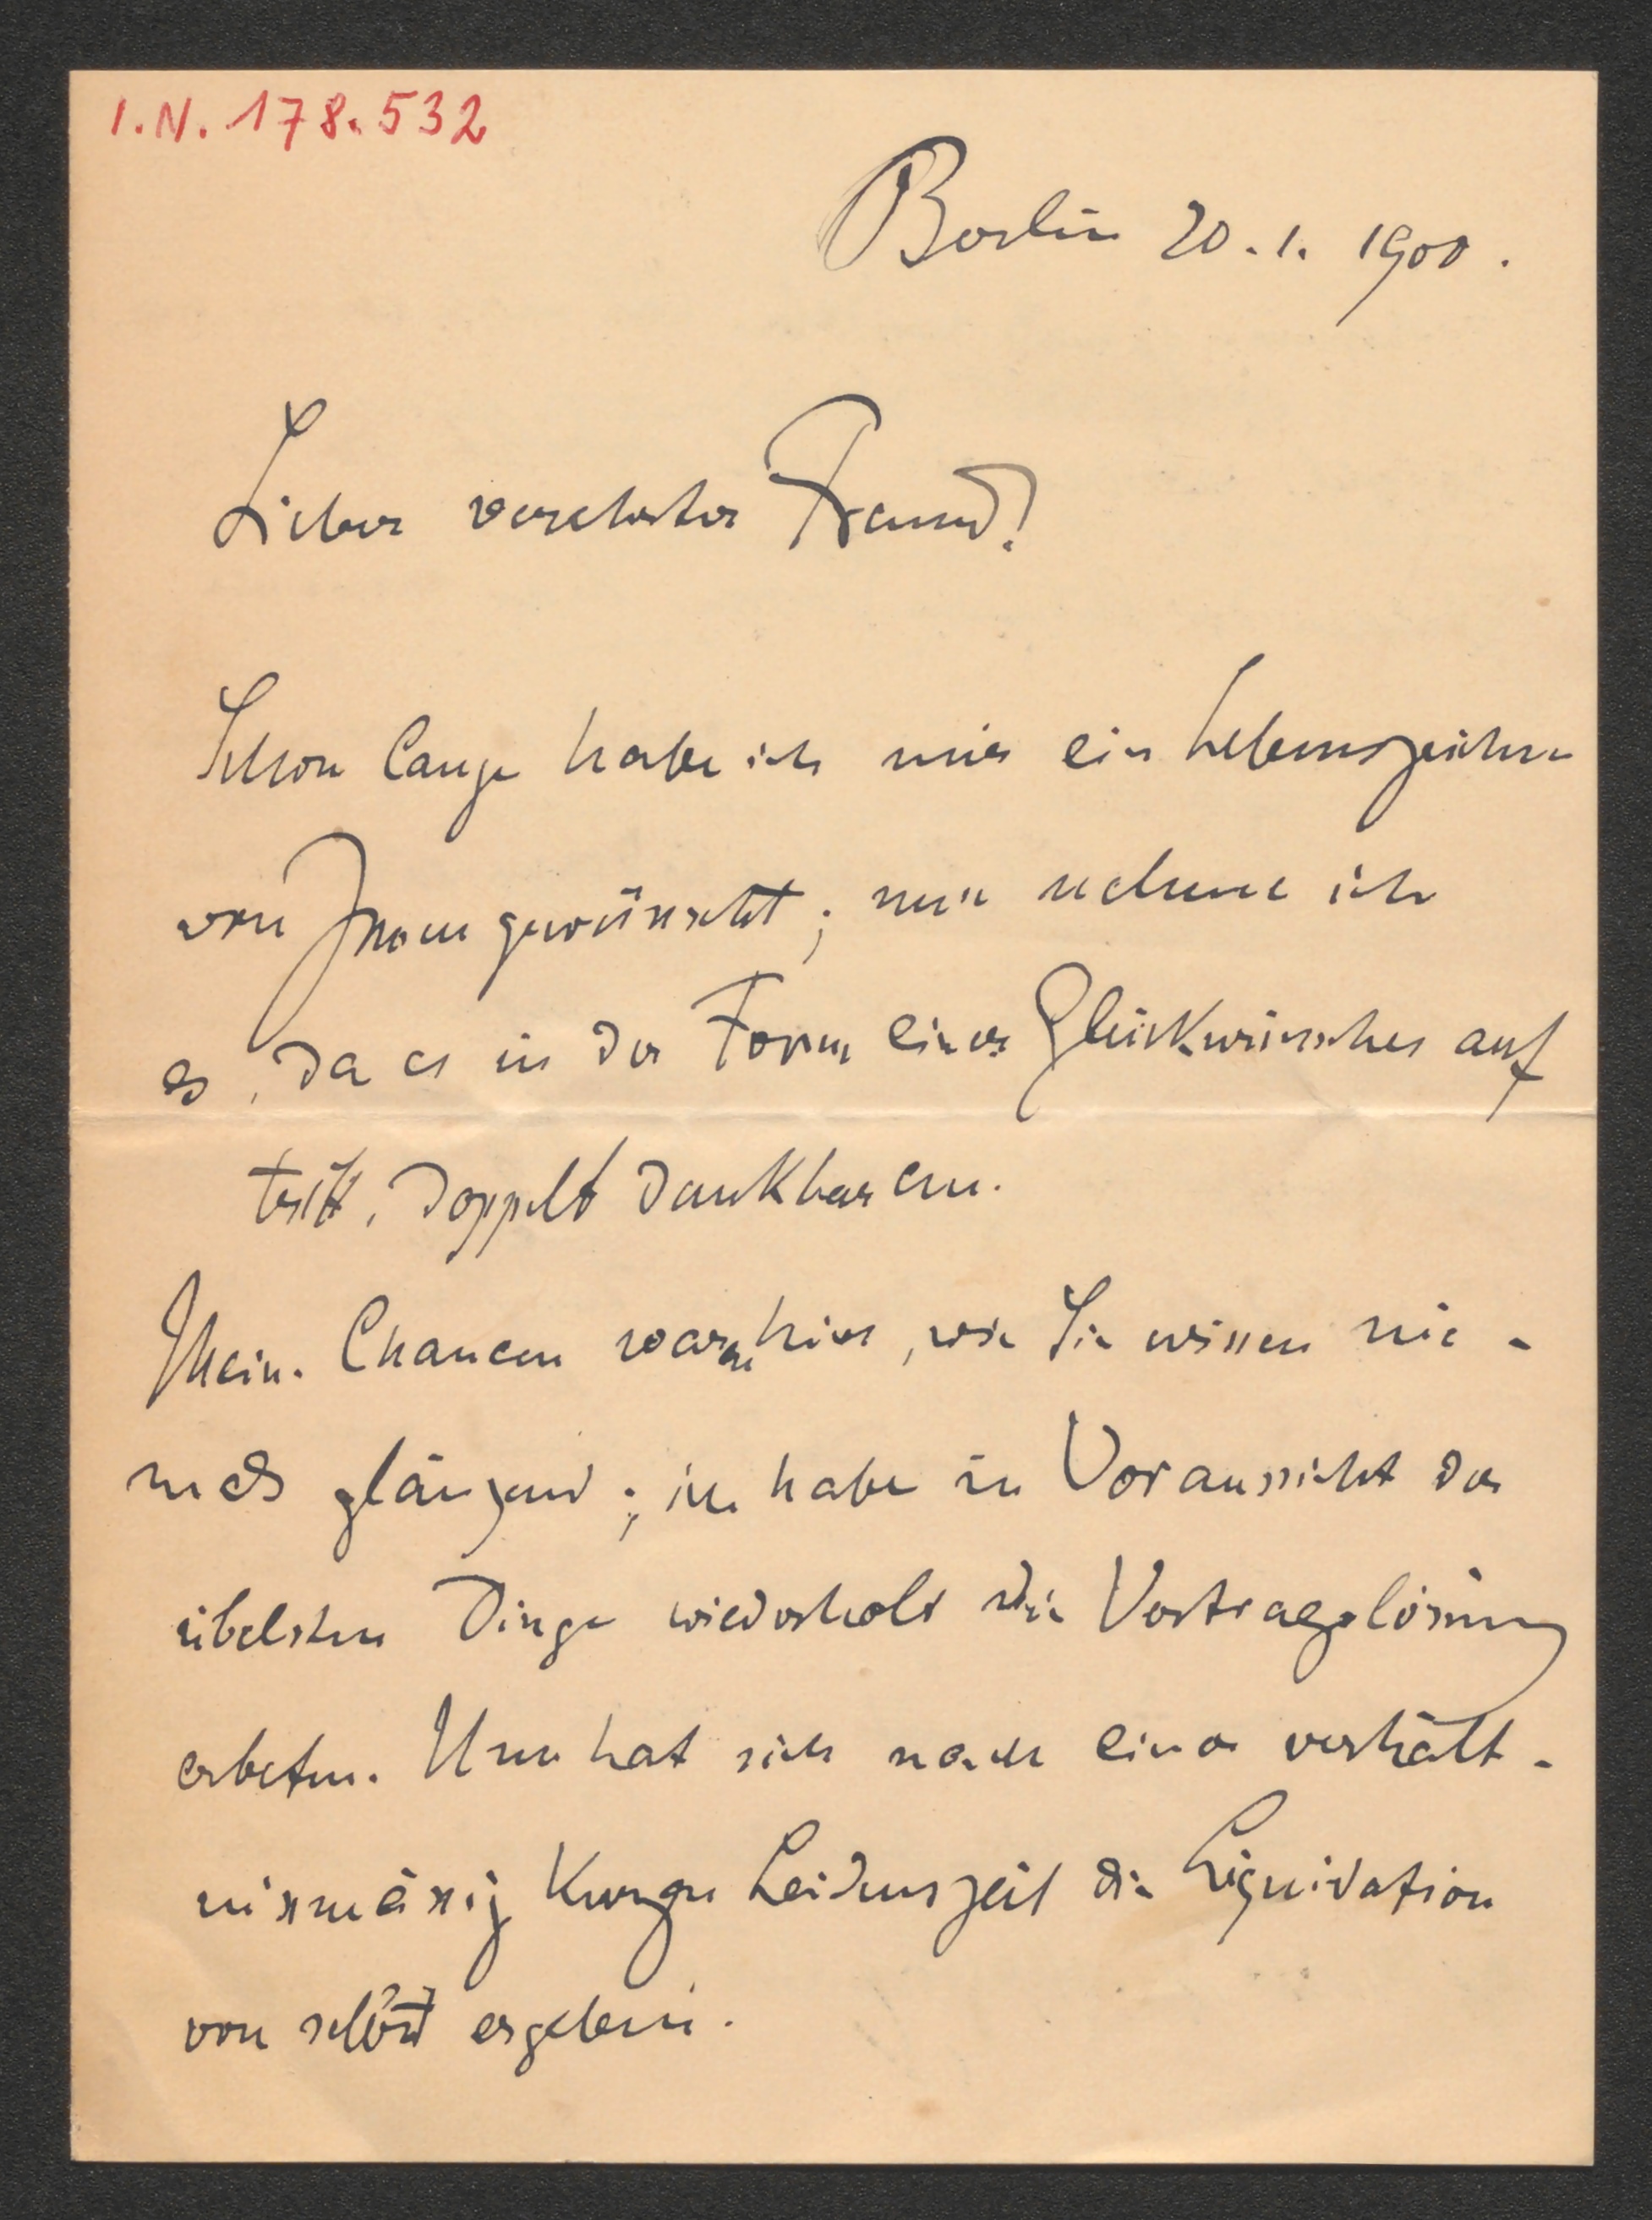 I.N. 178.532
Berlin 20.1.1900.
Lieber verehrter Freund!
Schon lange habe ich mir ein Lebenszeichen
von Ihnen gewünscht; nun nehme ich
es, da es in der Form eines Glückwunsches auf
tritt, doppelt dankbar an.
Meine Chancen waren hier, wie Sie wissen nie-
mals glänzend; ich habe in Voraussicht der
übelsten Dinge wiederholt die Vertragslösung
erbeten. Nun hat sich nach einer verhält-
nismäsig kurzen Leidenszeit die Liquidation
von selbst ergeben.